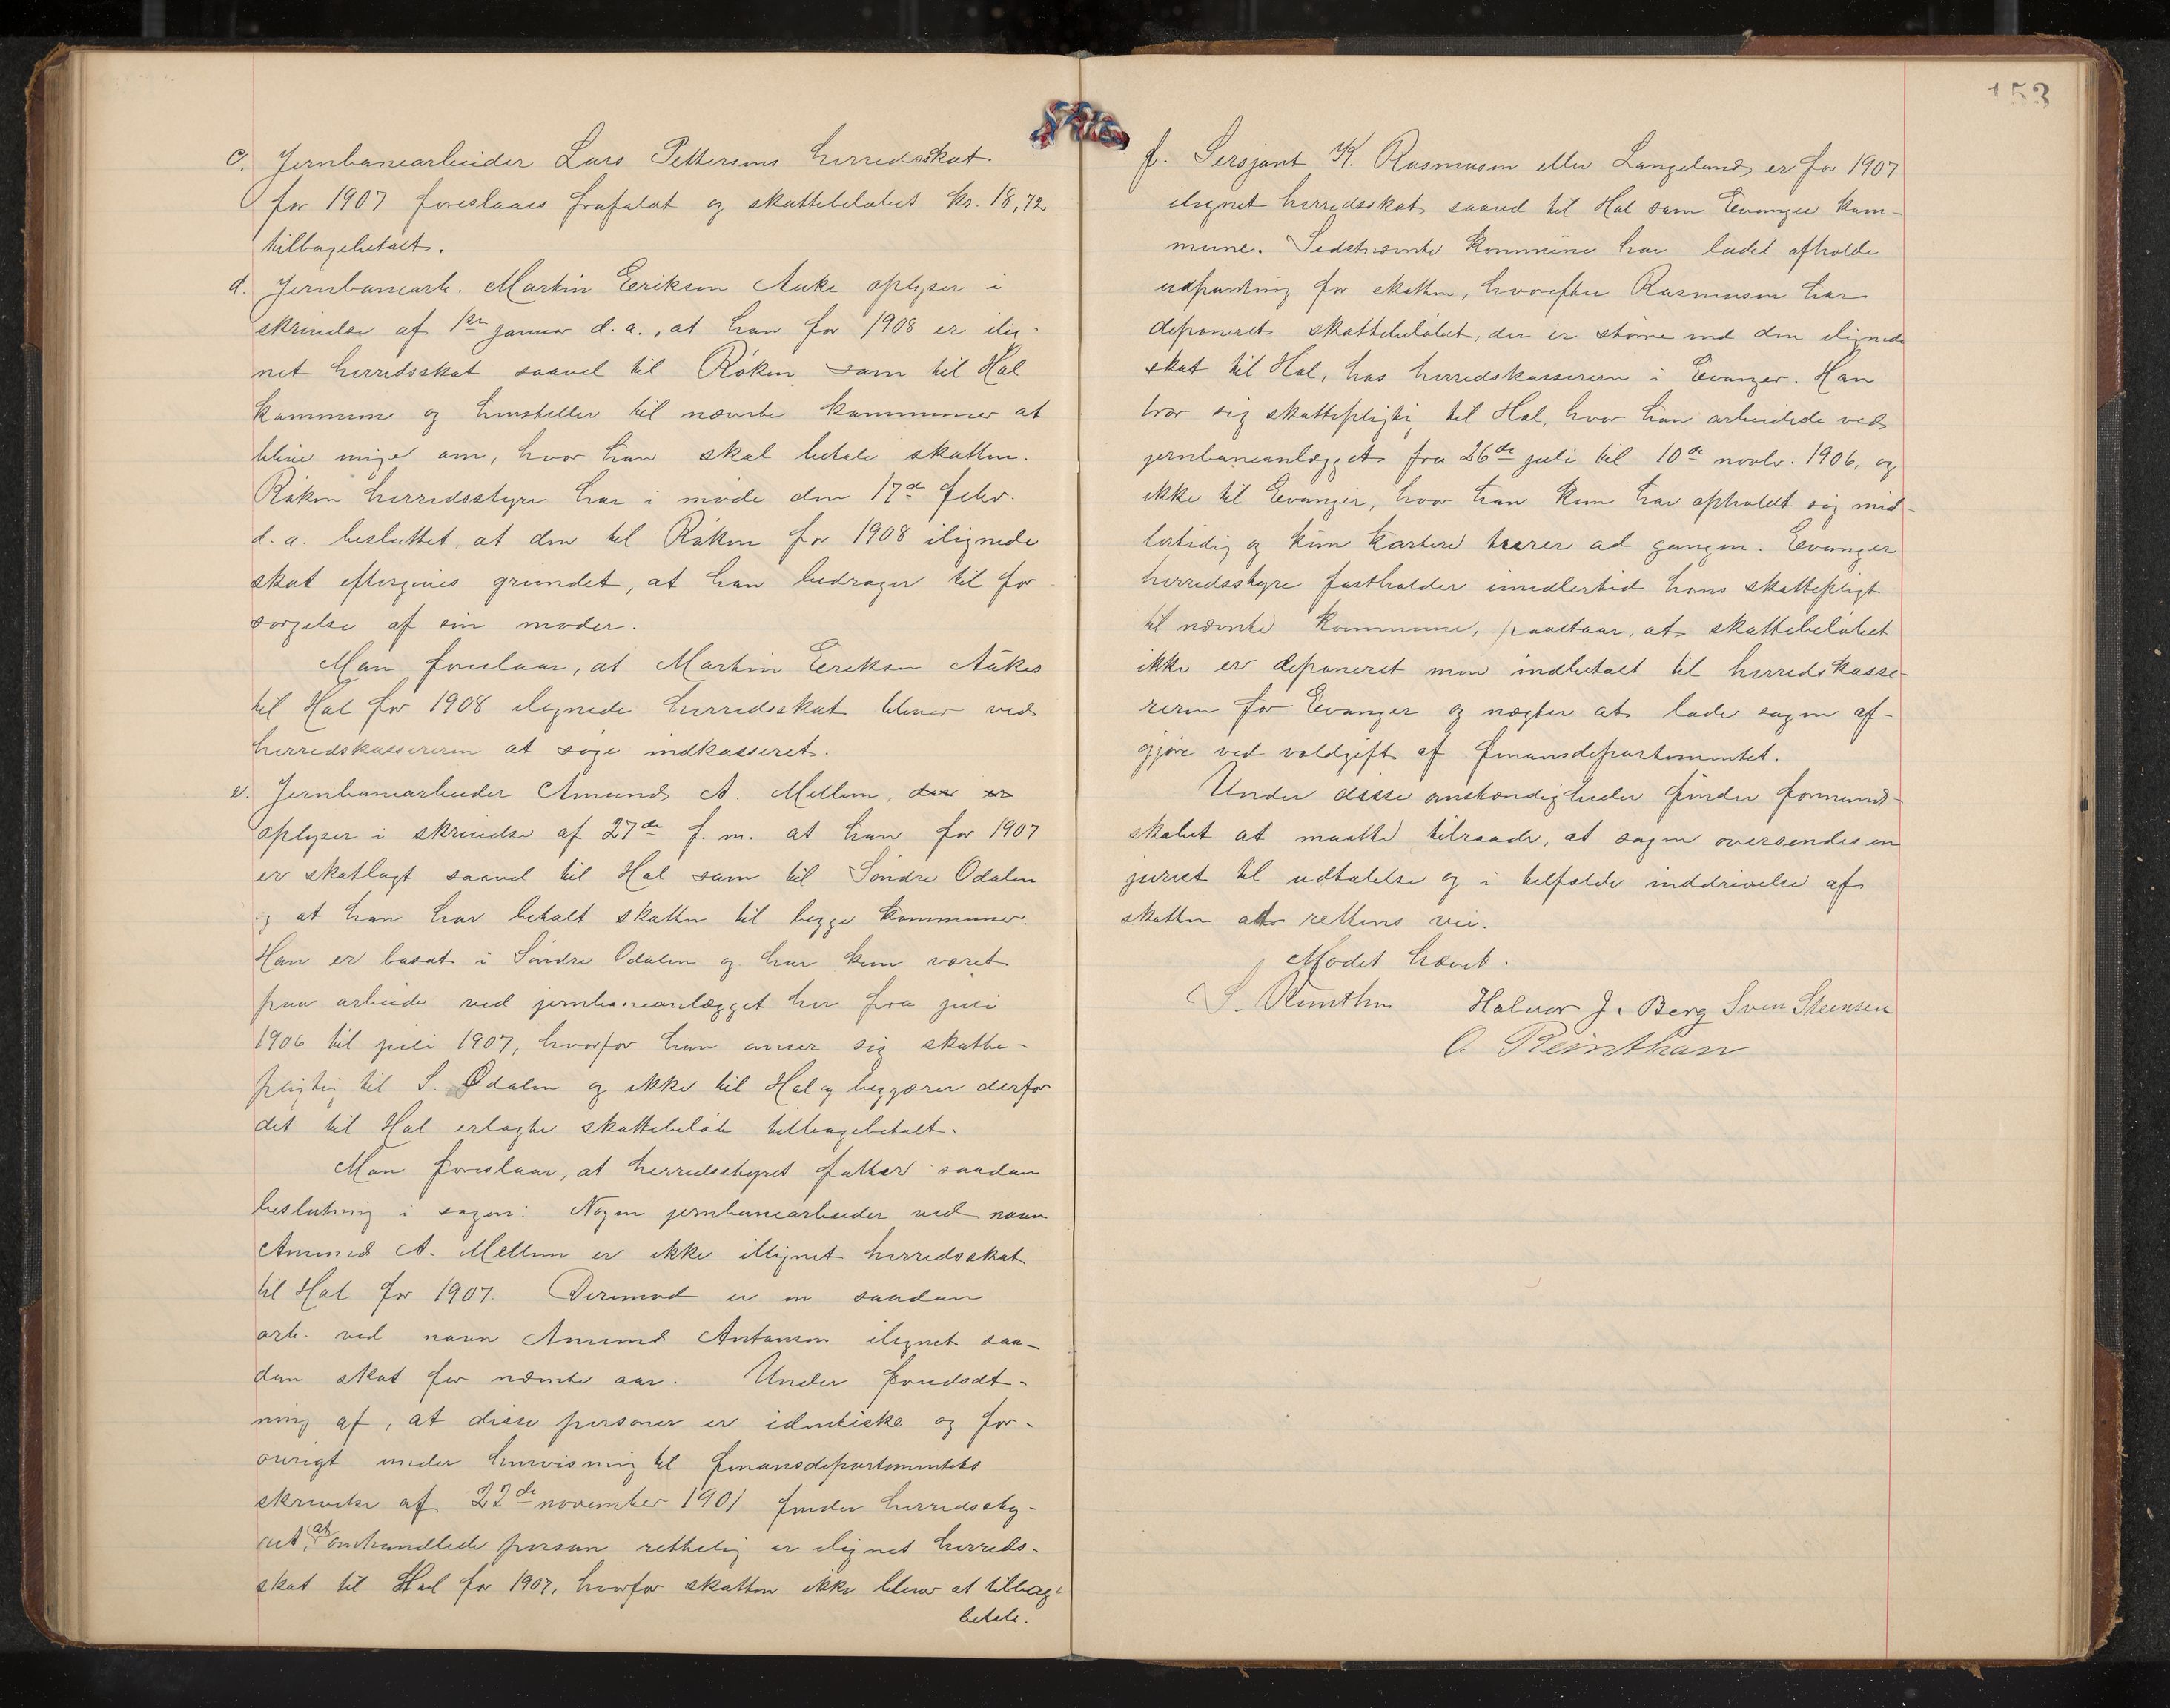 c. Jernbanearbeider Lars Pettersens herredsskat
for 1907 foreslaaes frafaldt og skattebeløbet kr. 18,72
tilbagebetalt.
d. Jernbanearb. Martin Erikson Auke oplyser i
skrivelse af 1ste januar d. a., at han for 1908 er ilig-
net herredsskat saavel til Røken som til Hol
kommune og henstiller til nævnte kommuner at
blive enige om, hvor han skal betale skatten.
Røken herredsstyre har i møde den 17de febr.
d. a. besluttet, at den til Røken for 1908 ilignede
skat eftergives grundet, at han bidrager til for
sørgelse af sin moder.
Man foreslaar, at Martin Erikson Aukes
til Hol for 1908 ilignede herredsskat bliver ved
herredskassereren at søge indkasseret.
e. Jernbanearbeider Amund A. Mellem, der er
oplyser i skrivelse af 27de f. m. at han for 1907
er skatlagt saavel til Hol som til Søndre Odalen
og at han har betalt skatten til begge kommuner.
Han er bosat i Søndre Odalen og har kun været
paa arbeide ved jernbaneanlægget her fra juli
1906 til juli 1907, hvorfor han anser sig skatte-
pligtig til S. Odalen og ikke til Hol og begjærer derfor
det til Hol erlagte skattebeløb tilbagebetalt.
Man foreslaar, at herredsstyret fatter saadan
beslutning i sagen: Nogen jernbanearbeider ved navn
Amund A. Mellem er ikke ilignet herredsskat
til Hol for 1907. Derimod er en saadan
arb. ved navn Amund Antonson ilignet saa-
dan skat for nævnte aar. Under forudsæt-
ning af, at disse personer er identiske og for-
øvrigt under henvisning til finansdepartementets
skrivelse af 22de november 1901 finder herredssty-
ret, at omhandlede person rettelig er ilignet herreds-
skat til Hol for 1907, hvorfor skatten ikke bliver at tilbage
betale.
153
f. Sersjant K. Rasmusen eller Langeland er for 1907
ilignet herredsskat saavel til Hol som Evanger kom-
mune. Sidstnævnte kommune har ladet afholde
udpantning for skatten, hvorefter Rasmusen har
deponeret skattebeløbet, der er større end den ilignede
skat til Hol, hos herredskassereren i Evanger. Han
tror sig skattepligtig til Hol, hvor han arbeidede ved
jernbaneanlægget fra 26de juli til 10de novbr. 1906, og
ikke til Evanger, hvor han kun har opholdt sig mid-
lertidig og kun kortere turer ad gangen. Evanger
herredsstyre fastholder imidlertid hans skattepligt
til nævnte kommune, paastaar, at skattebeløbet
ikke er deponeret men indbetalt til herredskasse-
reren for Evanger og nægter at lade sagen af-
gjøre ved voldgift af finansdepartementet.
Under disse omstændigheder finder formand-
skabet at maatte tilraade, at sagen oversendes en
jurist til udtalelse og i tilfælde inddrivelse af
skatten ad rettens vei.
Mødet hævet.
Halvor J. Berg Sven Steensen
O. Reinthon